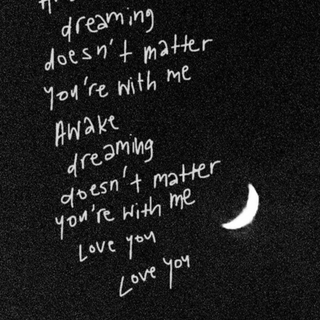 dreaming
doesn't matter
you're with me
Awake
dreaming
doesn't matter
you're with me
Love you
Love you